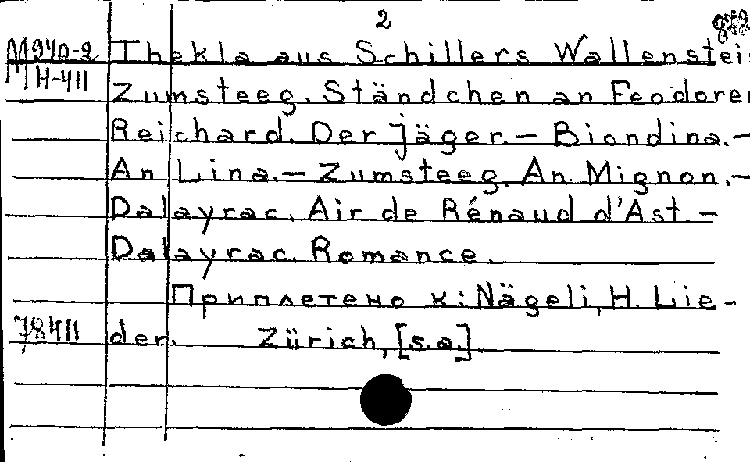 2
М940-2 Thekla aus Schillers Wallenstei
М Н-411
Zumsteeg. Ständchen an Feodore
Reichard. Der Jäger.— Biondina.—
An Lina.— Zumsteeg. An Mignon.—
Dalayrac. Air de Rénaud d'Ast —
Dalayrac. Romance.
Приплетено к: Nägeli, H. Lie-
78411 der. Zürich, [s.a.]